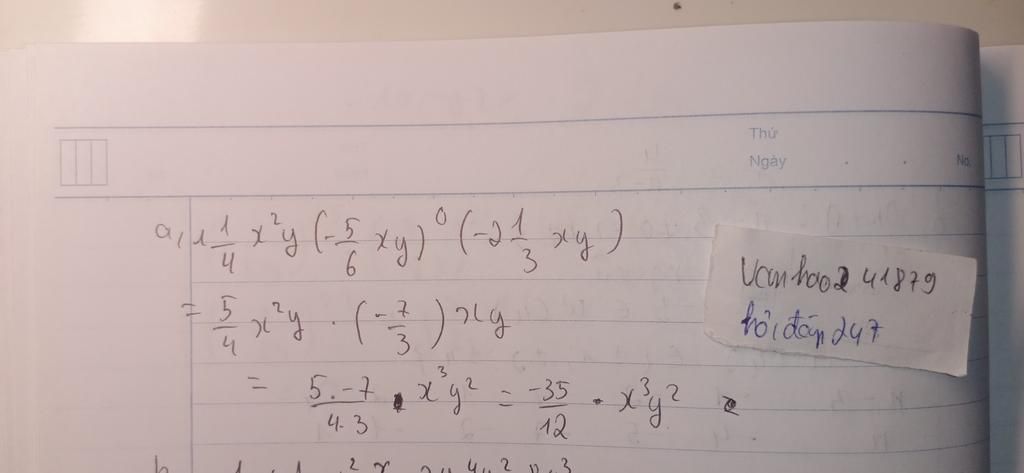 Thứ
Ngày
No.
a, 1 1/4 x²y (-5/6 xy)⁰ (-2 1/3 xy)
= 5/4 x²y . (-7/3) xy
= 5.-7/4.3 . x³y² = -35/12 . x³y²
vanhao241879
hỏi đáp 247